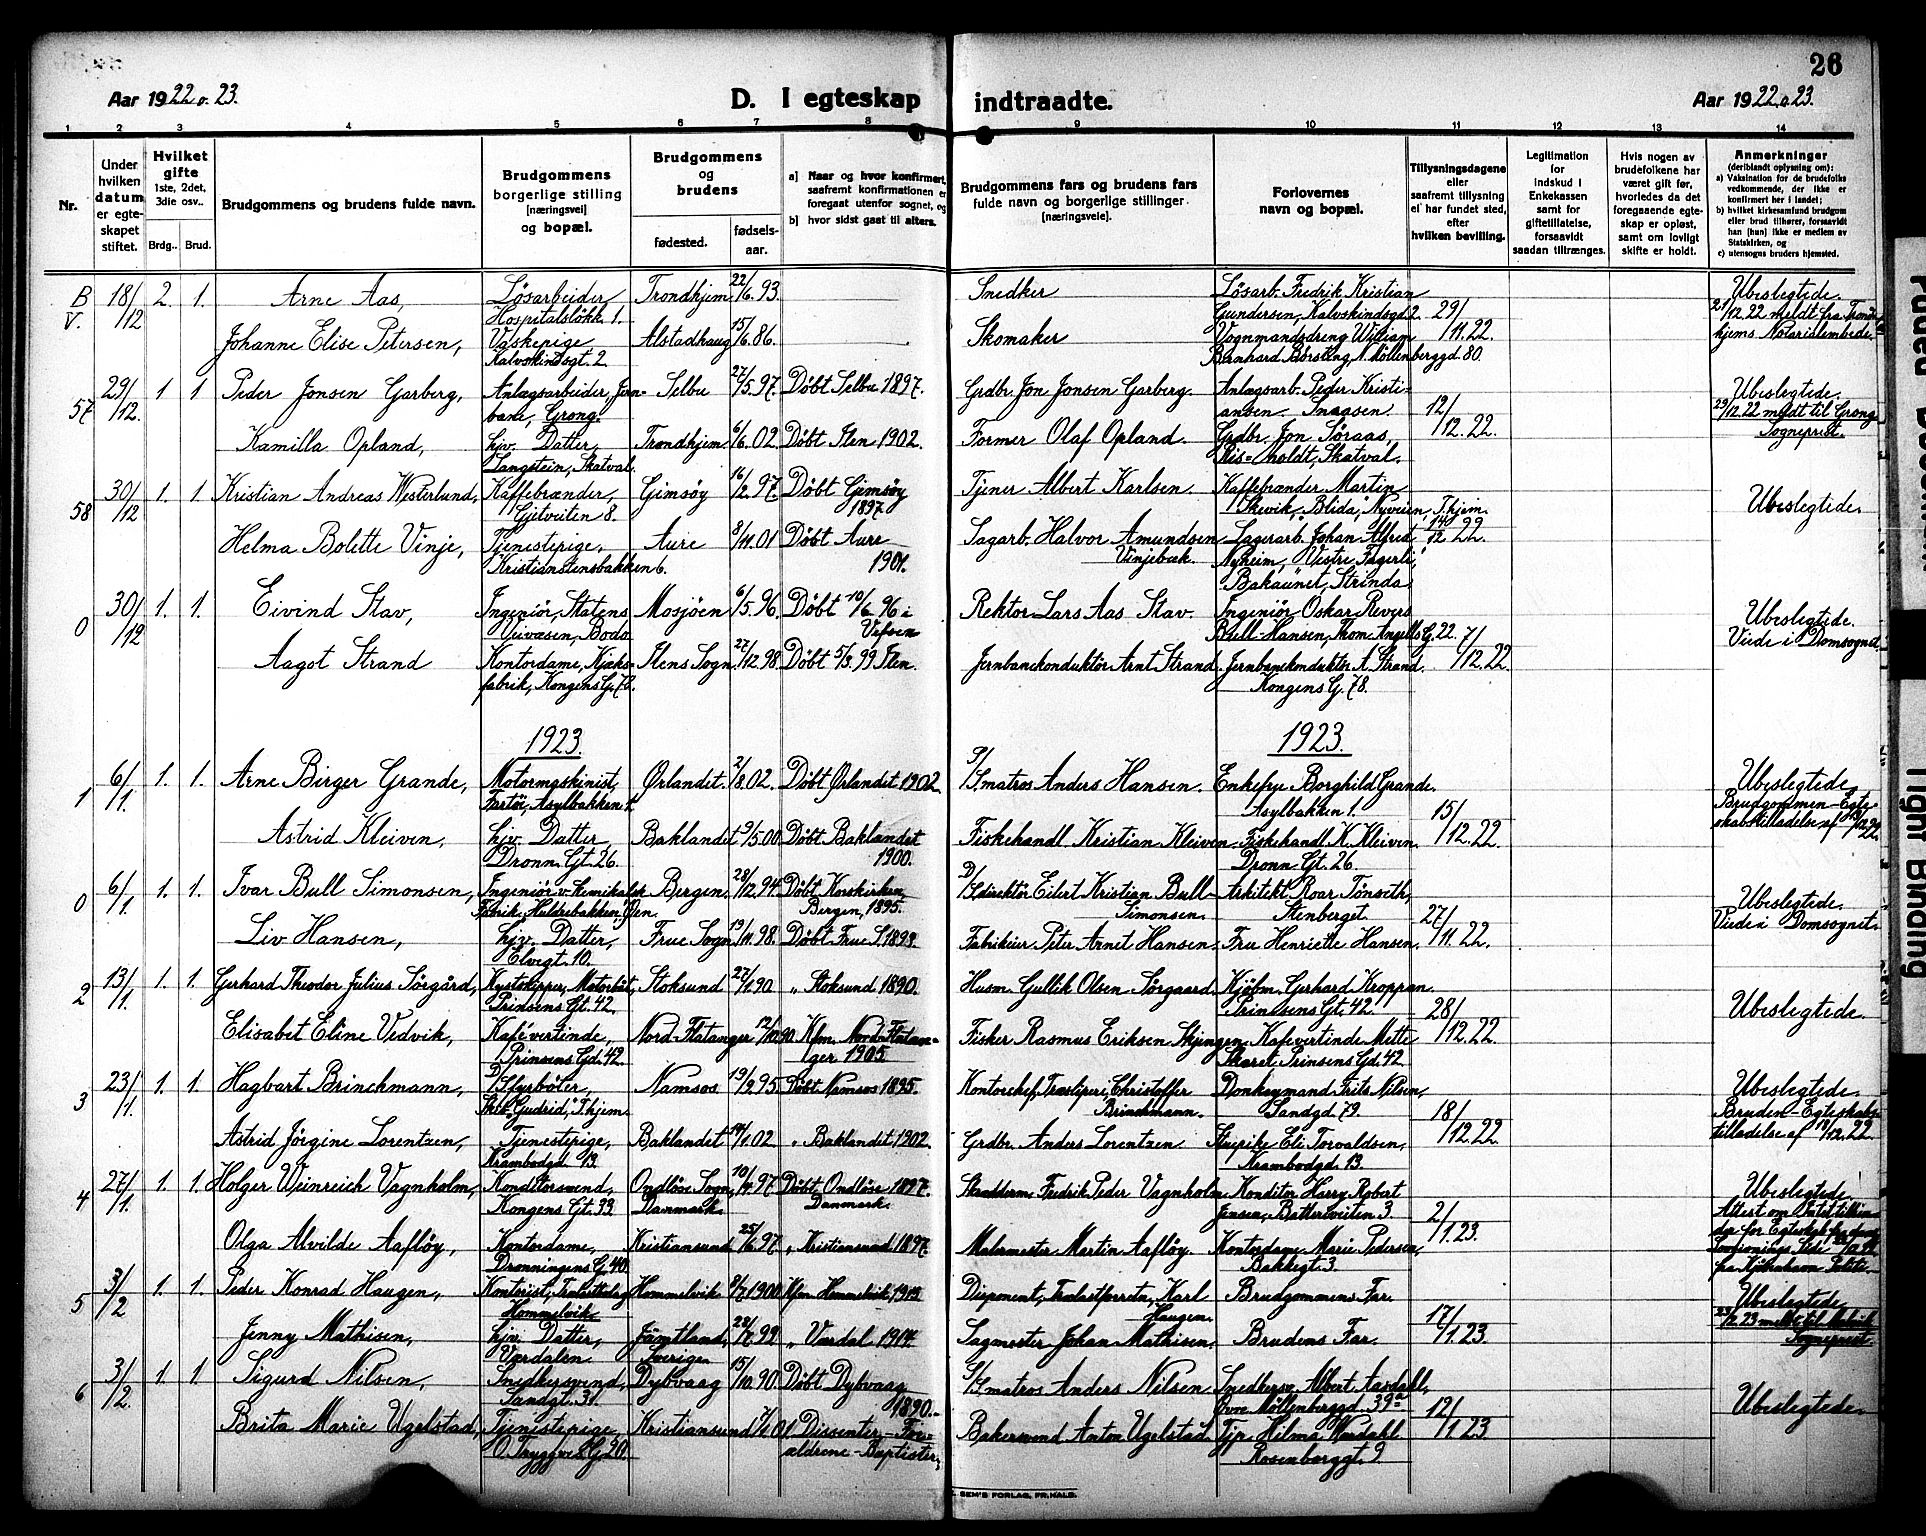 26
Aar 1922 o. 23.
D. I egteskap indtraadte.
Aar 1922 o 23.
1 2 3 4 5 6 7 8 9 10 11 12 13 14
Nr.
Under hvilken datum er egteskapet stiftet.
Hvilket gifte 1ste, 2det, 3die osv..
Brdg.. Brud.
Brudgommens og brudens fulde navn.
Brudgommens borgerlige stilling [næringsvei] og bopæl.
Brudgommens og brudens
fødested. fødsels-aar.
a] Naar og hvor konfirmert, saafremt konfirmationen er foregaat utenfor sognet, og
b] hvor sidst gaat til alters.
Brudgommens fars og brudens fars fulde navn og borgerlige stillinger [næringsveie].
Forlovernes navn og bopæl.
Tillysningsdagene eller saafremt tillysning ei har fundet sted, efter hvilken bevilling.
Legitimation for indskud i Enkekassen samt for giftetillatelse, forsaavidt saadan tiltrænges.
Hvis nogen av brudefolkene har været gift før, hvorledes da det foregaaende egteskap er opløst, samt om lovlig skifte er holdt.
Anmerkninger (deriblandt oplysning om):
a) Vaksination for de brudefolks vedkommende, der ikke er konfirmert her i landet;
b) hvilket kirkesamfund brudgom eller brud tilhører, forsaavidt han [hun] ikke er medlem av Statskirken, og
c) utensogns bruders hjemsted.
B V. 18/12 2. 1. Arne Aas, Løsarbeider, Hospitalsløkk. 1. Trondhjem 22/6.93. Snedker Løsarb. Fredrik Kristian Gundersen, Kalvskindsgd 2. 29/11.22. Ubeslegtede. 21/12.22 meldt fra Trondhjems Notarialembede.
Johanne Elise Petersen, Vaskepige, Kalvskindsgt. 2 Alstadhaug 15/6.86. Skomaker Vognmandsdreng William Barnhard Børsting, N. Møllenberggd. 80.
57 29/12. 1 1 Peder Jonsen Garberg, Anlægsarbeider, Jernbane, Grong. Selbu 27/5.97. Døbt Selbu 1897. Grdbr. Jon Jonsen Garberg. Anlægsarb. Peder Kristiansen. Snaasen. 12/12.22. Ubeslegtede. 29/12.22 meldt til Grong Sogneprest.
Kamilla Opland, hjv. Datter, Langstein, Skatval. Trondhjem 6/6.02. Døbt Ilen 1902. Former Olaf Opland. Grdbr. Jon Søraas, Skatval.
58 30/12 1. 1 Kristian Andreas Westerlund, Kaffebrænder, Gjetveiten 8. Gimsøy 16/2.97. Døbt Gimsøy 1897 Tjener Albert Karlsen. Kaffebrænder Martin Skevik, "Blida", Nyveien, T.hjem. 14/12 22. Ubeslegtede.
Helma Bolette Vinje, Tjenestepige, Kristianstensbakken 6. Aure 8/11.01 Døbt Aure 1901. Sagarb. Halvor Amundsen Vinjebak. Lagerarb. Johan Alfred Nyheim, "Vestre Fagerli", Bakaunet, Strinda
0 30/12 1. 1. Eivind Stav, Ingeniør, Statens Veivæsen, Bodø Mosjøen 6/5.96. Døbt 10/6 96 i Vefsen Rektor Lars Aas Stav. Ingeniør Oskar Revers Bull-Hansen, Thom. Angells G. 22. 7/12.22 Ubeslegtede. Viede i Domsognet
Aagot Strand Kontordame, Kjeksfabrik, Kongens G. 78. Ilens Sogn. 27/12.98. Døbt 5/3.99 Ilen. Jernbanekonduktør Arnt Strand. Jernbanekonduktør A. Strand. Kongens G. 78.
1923. 1923.
1 6/1. 1. 1. Arne Birger Grande, Motormaskinist, Fartøi, Asylbakken 1. Ørlandet. 2/8.02. Døbt Ørlandet 1902. S/Smatros Anders Hansen. Enkefru Borghild Grande. Asylbakken 1. 15/12.22. Ubeslegtede. Brudgommen-Egteskabstilladelse af
Astrid Kleiven, hjv. Datter, Dronn. Gt. 26. Baklandet 9/5.00 Døbt Baklandet 1900. Fiskehandl Kristian Kleiven. Fiskehandl K. Kleiven. Dronn. Gt. 26
0 6/1. 1. 1. Ivar Bull Simonsen, Ingeniør v. kemikalsk Fabrik, Huldrebakken, Ilen. Bergen. 28/12.94. Døbt Korskirken Bergen, 1895. D/Sdirektør Eilert Kristian Bull-Simonsen. Arkitekt Roar Tønseth, Stenberget. 27/11.22. Ubeslegtede. Viede i Domsognet.
Liv Hansen, hjv. Datter, Elvegt. 10. Frue Sogn 19/11.98. Døbt Frue S. 1898. Fabrikeier Peter Arnet Hansen. Fru Henriette Hansen.
2 13/1. 1. 1. Gerhard Theodor Julius Sørgård, Kystskipper, Motorbåt, Prinsens Gt. 42. Stoksund 27/1.90 " Stoksund 1890. Husm. Gullik Olsen Sørgaard. Kjøbm. Gerhard Kroppan. Prinsens Gt. 42. 28/12.22. Ubeslegtede.
Elisabet Eline Vedvik, Kaféværtinde, Prinsens Gd. 42. Nord-Flatanger 12/10.90. Kfm. Nord-Flatanger 1905 Fisker Rasmus Eriksen Skjingen. Kaféværtinde Mette Skaret, Prinsens Gd. 42.
3 23/1. 1. 1. Hagbart Brinchmann, D/Styrbøter, Skib "Gudrid", T.hjem. Namsos 19/2.95. Døbt Namsos 1895. Kontorchef, Træsliperi, Christoffer Brinchmann. Donkeymand Frits Nilsen, Sandgd. 79. 18/12.22 Ubeslegtede. Bruden-Egteskabstilladelse af 18/12.22
Astrid Jørgine Lorentzen, Tjenestepige, Krambodgd 13. Baklandet 14/1.02 " Baklandet 1902. Grdbr. Anders Lorentzen Strepike Eli Torvaldsen, Krambodgd. 13.
4 27/1. 1. 1. Holger Weinreich Vagnholm, Konditorsvend, Kongens Gt. 33. Ondløse Sogn, Danmark. 10/11.97. Døbt Ondløse 1897. Danmark. Fredrik Peder Vagnholm. Konditor Harry Robert Jensen, Batteriveiten 3. 2/1.23. Ubeslegtede. Attest om fra Kjøbenhavn Politi
Olga Alvilde Aafløy, Kontordame, Dronningens G. 40. Kristiansund 25/6.97. " Kristiansund 1897. Malermester Martin Aafløy. Kontordame Marie Pedersen, Bakkegt. 3.
5 3/2 1. 1. Peder Konrad Haugen, Kontorist, Hommelvik Hommelvik 8/7.1900 Kfm. Hommelvik 1915 Disponent, Karl Haugen. Brudgommens Far. 17/1.23. Ubeslegtede.
Jenny Mathisen, hjv. Datter, Verdalen Jämtland, Sverige 22/7.99 " Verdal 1914. Sagmester Johan Mathisen. Brudens Far. Sogneprest.
6 3/2. 1. 1. Sigurd Nilsen, Snedkersvend, Sandgt. 30. Dybvaag 15/10.90. Døbt Dybvaag 1890. S/Smatros Anders Nilsen Snedkersv. Albert Aasdahl, Øvre Møllenberggd. 39a 12/1.23 Ubeslegtede.
Brita Marie Ugelstad, Tjenestepige, O. Tryggves G. 20. Kristiansund Dissenter-Foraldrene-Baptister, Bakersvend Anton Ugelstad. Tjp. Hilma Werdahl Rosenborggt. 9.
SEM'S FORLAG, FR.HALD.
Tight Binding